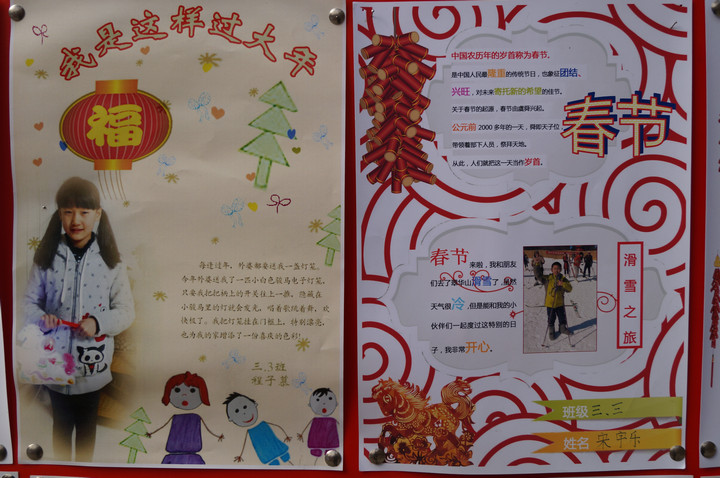 我是这样过大年
福
每逢过年，外婆都要送我一盏灯笼。
今年外婆送我了一匹小白色骏马电子灯笼。
只要我把把柄上的开关往上一推，隐藏在
小骏马里的灯就会发光，唱着歌跳着舞，欢
快极了。我把灯笼挂在门框上，特别漂亮，
也为我的家增添了一份喜庆的色彩！
三.3班
程子慕
中国农历年的岁首称为春节。
是中国人民最隆重的传统节日，也象征团结、
兴旺，对未来寄托新的希望的佳节。
关于春节的起源，春节由虞舜兴起。
公元前 2000 多年的一天，舜即天子位，
带领着部下人员，祭拜天地。
从此，人们就把这一天当作岁首。
春节
春节来啦，我和朋友
们去了 华山滑雪了，虽然
天气很冷，但是能和我的小
伙伴们一起度过这特别的日
子，我非常开心。
滑雪之旅
班级 三.三
姓名 宋宇乐